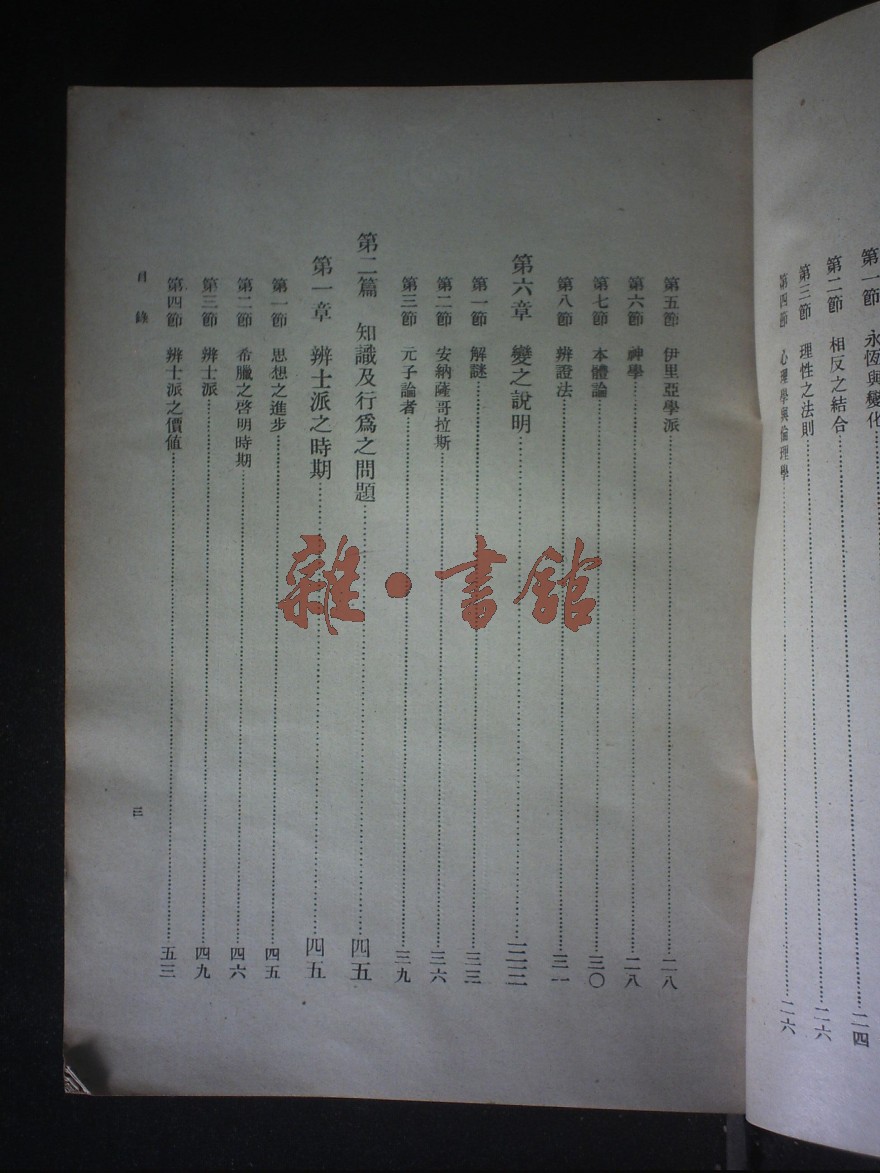 第一節 永恆與變化
第二節 相反之結合……二四
第三節 理性之法則……二六
第四節 心理學與倫理學……二六
第五節 伊里亞學派……二八
第六節 神學……二八
第七節 本體論……三〇
第八節 辨證法……三一
第六章 變之說明……三三
第一節 解謎……三三
第二節 安納薩哥拉斯……三六
第三節 元子論者……三九
第二篇 知識及行爲之問題……四五
第一章 辨士派之時期……四五
第一節 思想之進步……四五
第二節 希臘之啓明時期……四六
第三節 辨士派……四九
第四節 辨士派之價値……五三
目錄
三
雜·書館